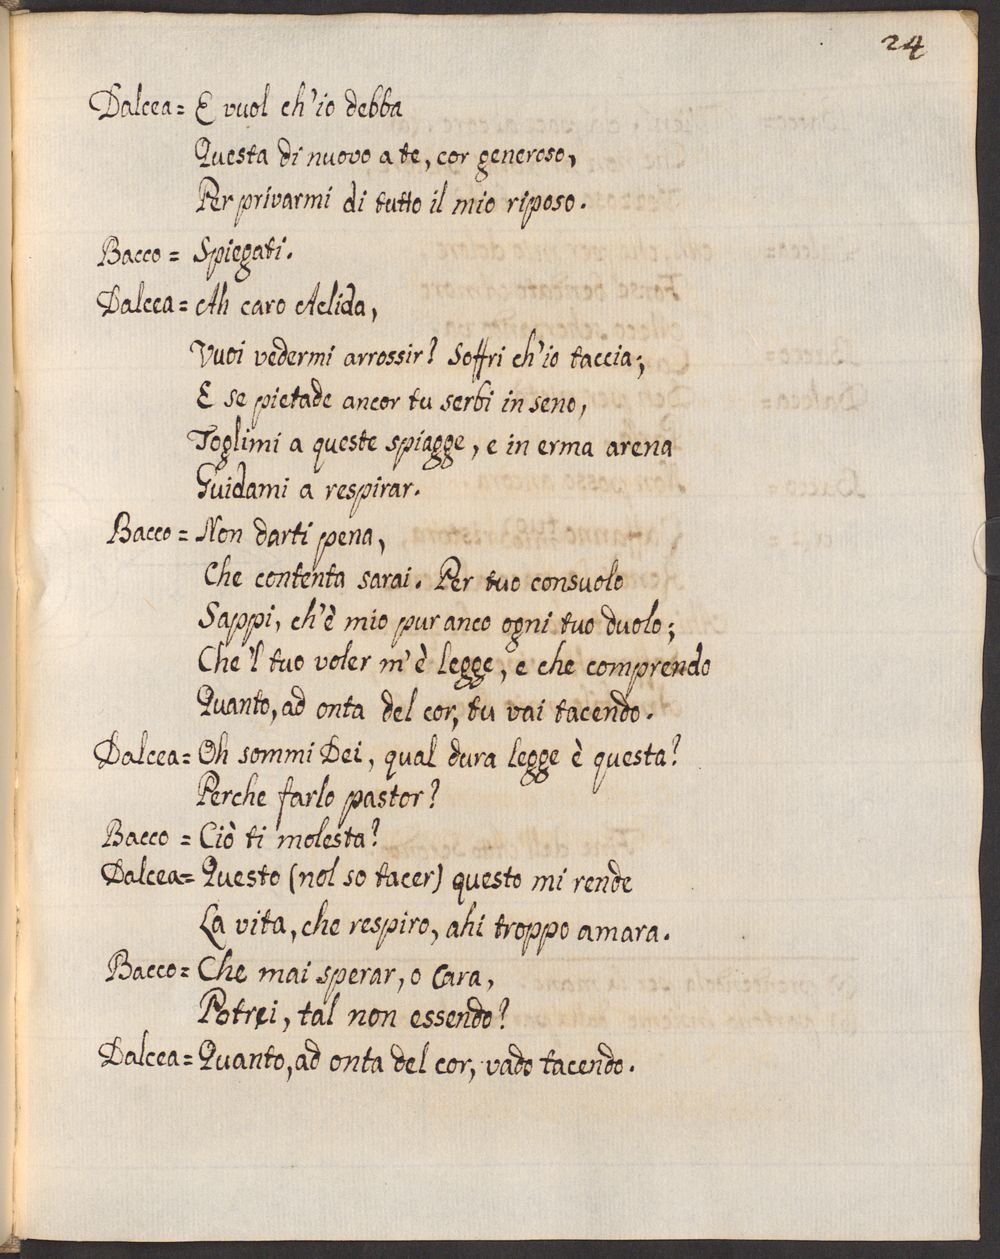 24
Dalcea = E vuol ch'io debba
Questa di nuovo a te, cor generoso,
Per privarmi di tutto il mio riposo.
Bacco = Spiegati.
Dalcea = Ah caro Aclida,
Vuoi vedermi arrossir? Soffri ch'io taccia;
E se pietade ancor tu serbi in seno,
Toglimi a queste spiagge, e in erma arena
Guidami a respirar.
Bacco = Non darti pena,
Che contenta sarai. Per tuo consuolo
Sappi, ch'è mio pur anco ogni tuo duolo;
Che 'l tuo voler m'è legge, e che comprendo
Quanto, ad onta del cor, tu vai tacendo.
Dalcea = Oh sommi Dei, qual dura legge è questa?
Perche farlo pastor?
Bacco = Ciò ti molesta?
Dalcea = Questo (nol so tacer) questo mi rende
La vita, che respiro, ahi troppo amara.
Bacco = Che mai sperar, o Cara,
Potrei, tal non essendo?
Dalcea = Quanto, ad onta del cor, vado tacendo.